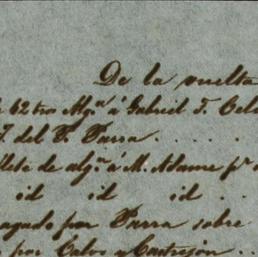 De la vuelta
62 tros Alg.ⁿ á Gabriel F.
J. del V. Parra . . . .
flete de alg.ⁿ á M. Adame p.ʳ
id id id .
pagado por Parra sobre
por Calvo y Castrejon . .